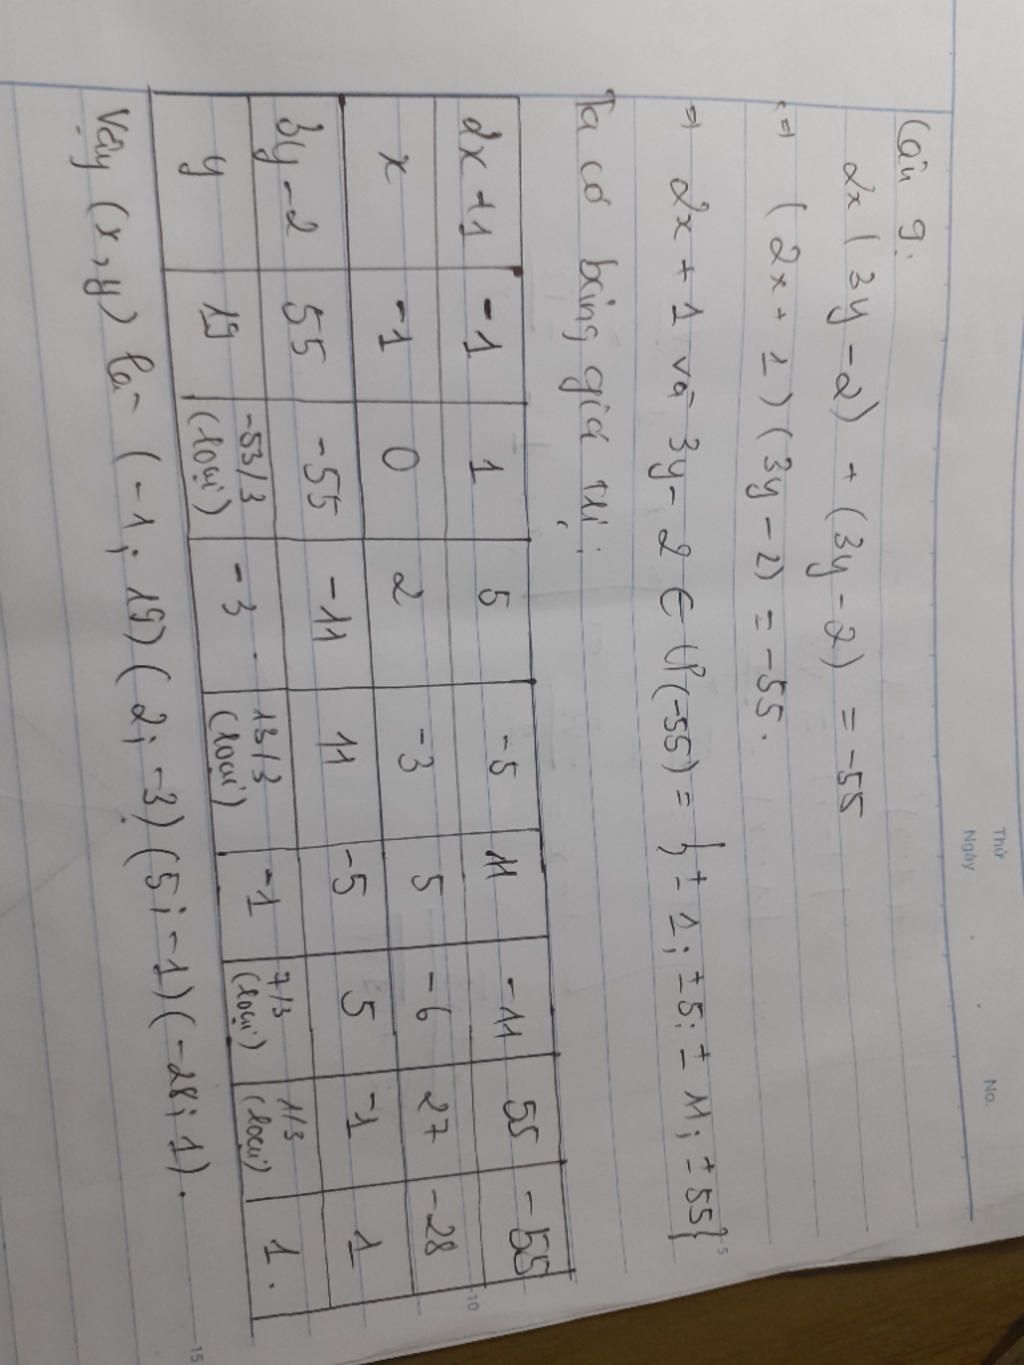 Thứ
Ngày
No.
Câu 9.
2x (3y - 2) + (3y - 2) = -55
(=) (2x + 1) (3y - 2) = -55.
=) 2x + 1 và 3y - 2 ∈ Ư(-55) = { ± 1; ± 5; ± 11; ± 55}
Ta có bảng giá trị:
2x + 1 -1 1 5 -5 11 -11 55 -55
x -1 0 2 -3 5 -6 27 -28
3y - 2 55 -55 -11 11 -5 5 -1 1
y 19 -53/3 (loại) -3 13/3 (loại) -1 7/3 (loại) 1/3 (loại) 1.
Vậy (x, y) là (-1; 19) (2; -3) (5; -1) (-28; 1).
5
10
15